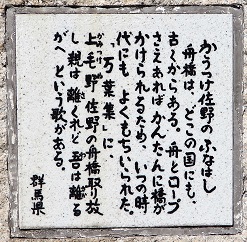 かうつけ佐野のふなはし
舟橋は、どこの国にも、
古くからある。舟とロープ
さえあれば かんたんに橋が
かけられるため、いつの時
代にも よくもちいられた。
「万葉集」に
上毛野佐野の舟橋取り放
し 親は離くれど 吾は離る
がへ という歌がある。
群馬県